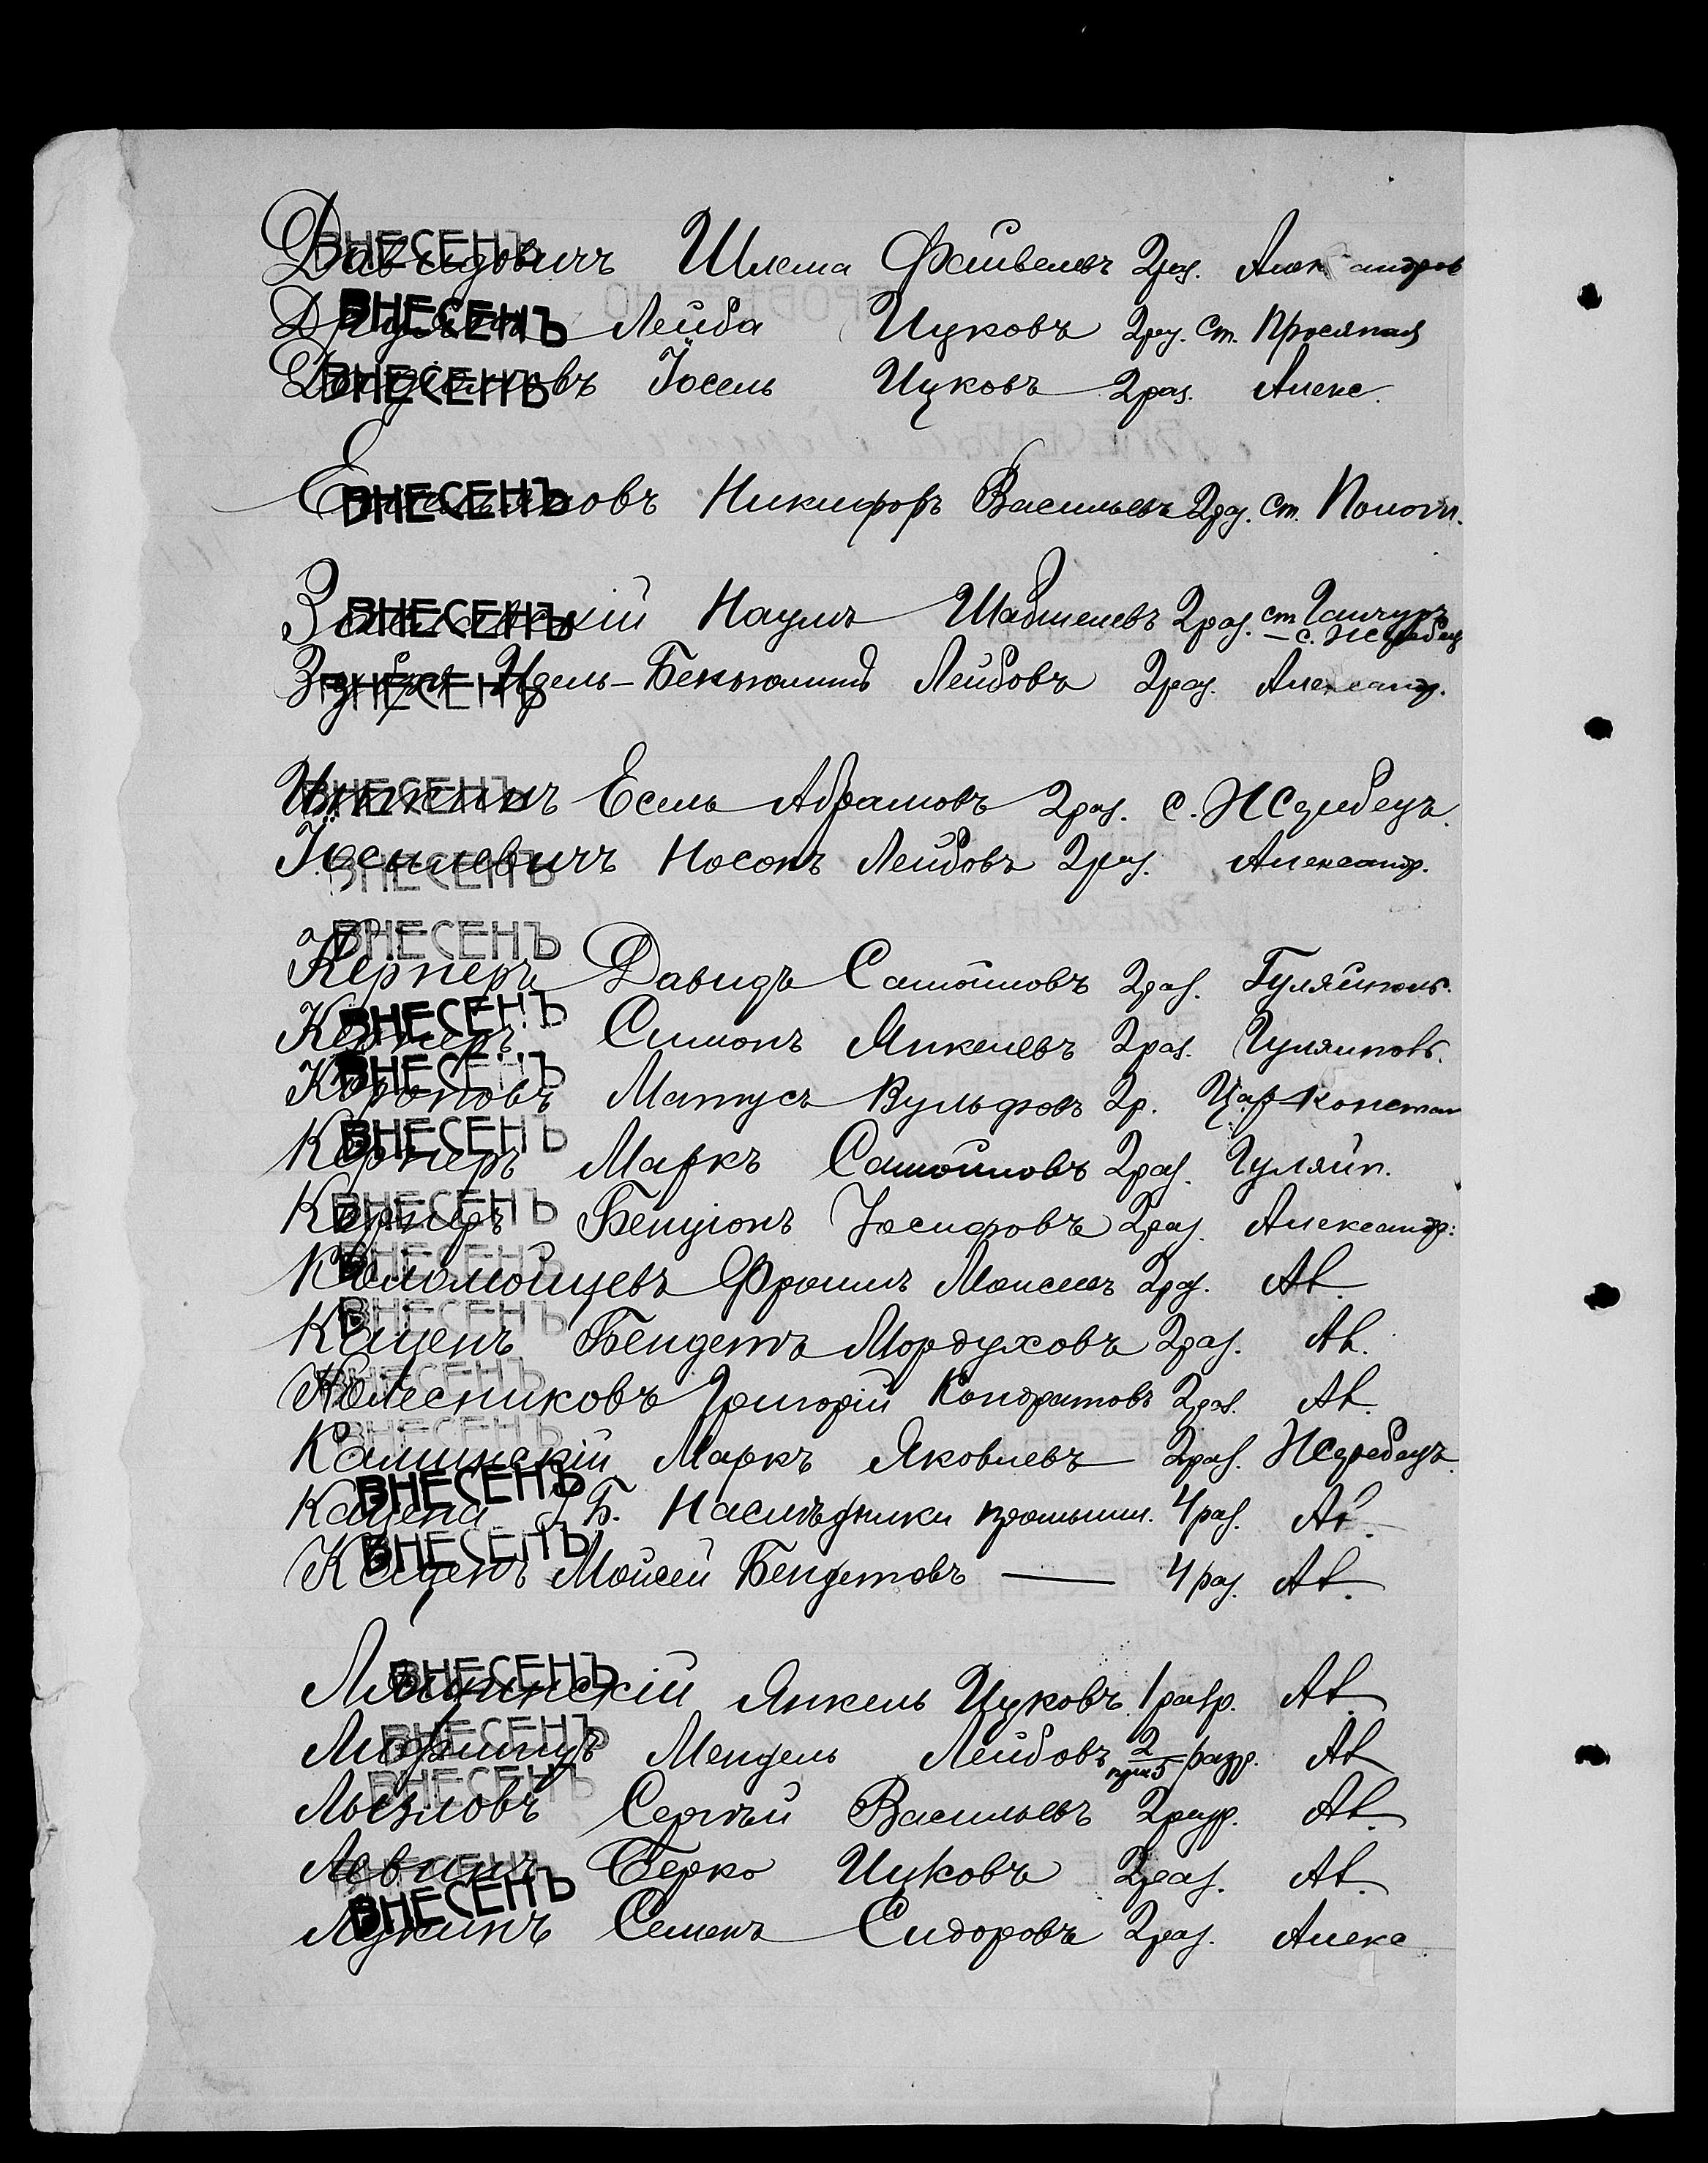 Давидовичъ Шлема Файвелевъ 2 раз. Александров
ВНЕСЕНЪ
Лейба Ицковъ 2 раз. ст. Просяная
ВНЕСЕНЪ
Іосель Ицковъ 2 раз. Алекс.
ВНЕСЕНЪ
Емельяновъ Никифоръ Васильевъ 2 раз. ст. Пологи.
ВНЕСЕНЪ
Наумъ Шабшелевъ 2 раз. ст. Гайчуръ
ВНЕСЕНЪ
— с. Жеребец
Идель-Беньяминъ Лейбовъ 2 раз. Александ.
ВНЕСЕНЪ
Есель Абрамовъ 2 раз. с. Жеребецъ.
ВНЕСЕНЪ
Іосилевичъ Носонъ Лейбовъ 2 раз. Александр.
ВНЕСЕНЪ
ВНЕСЕНЪ
Кернеръ Давидъ Самойловъ 2 раз. Гуляйполь.
ВНЕСЕНЪ
Кернеръ Симонъ Янкелевъ 2 раз. Гуляйполь.
ВНЕСЕНЪ
Матусъ Вульфовъ 2 р. Цар-Констан
ВНЕСЕНЪ
Кернеръ Маркъ Самойловъ 2 раз. Гуляйп.
ВНЕСЕНЪ
Кернеръ Бенціонъ Іосифовъ 2 раз. Александр:
ВНЕСЕНЪ
Коломойцевъ Фроимъ Моисеевъ 2 раз. Ал.
ВНЕСЕНЪ
Каценъ Бендетъ Мордуховъ 2 раз. Ал.
ВНЕСЕНЪ
Колесниковъ Григорій Кондратовъ 2 раз. Ал.
ВНЕСЕНЪ
Калинскій Маркъ Яковлевъ 2 раз. Жеребецъ.
ВНЕСЕНЪ
Кацена Б. Наслѣдники промышл. 4 раз. Ал.
ВНЕСЕНЪ
Каценъ Мойсей Бендетовъ — 4 раз. Ал.
ВНЕСЕНЪ
Янкель Ицковъ 1 разр. Ал.
ВНЕСЕНЪ
Мендель Лейбовъ 2 разр. Ал
ВНЕСЕНЪ
Лызловъ Сергѣй Васильевъ 2 разр. Ал.
Левинъ Берко Ицковъ 2 раз. Ал.
ВНЕСЕНЪ
Лукинъ Семенъ Сидоровъ 2 раз. Алекс